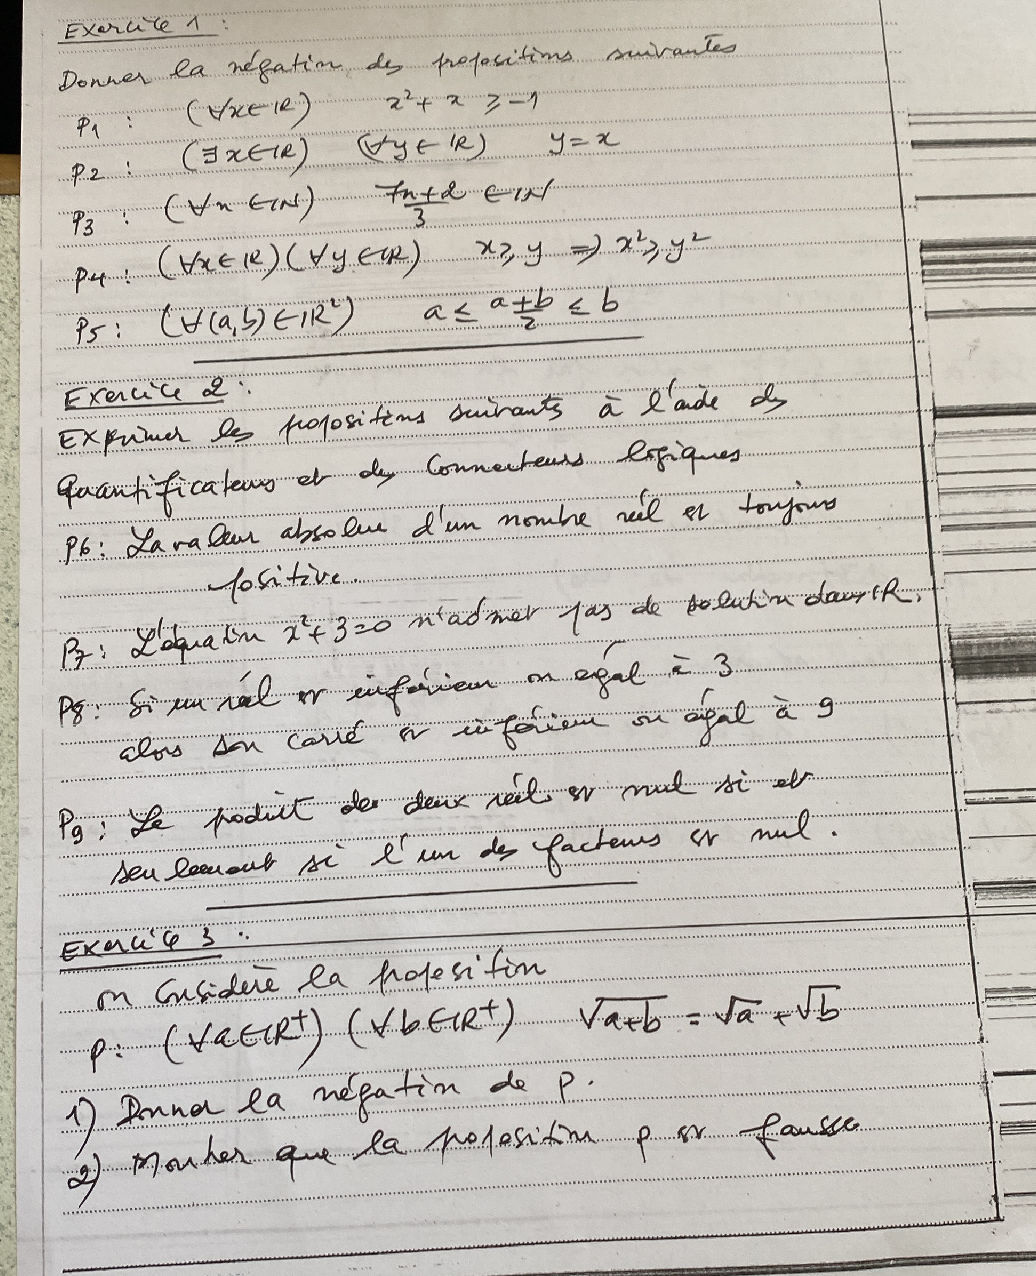 Exercice 1 :
Donner la négation des propositions suivantes
P1 : (∀x∈IR) x²+x ≥ -1
P2 : (∃x∈IR) (∀y∈IR) y = x
P3 : (∀n∈IN) (7n+2)/3 ∈ IN
P4 : (∀x∈IR)(∀y∈IR) x≥y ⇒ x²≥y²
P5 : (∀(a,b)∈IR²) a ≤ (a+b)/2 ≤ b
Exercice 2 :
Exprimer les propositions suivants à l'aide des
Quantificateurs et des Connecteurs logiques
P6 : La valeur absolue d'un nombre réel est toujours
positive.
P7 : L'équation x²+3=0 n'admet pas de solution dans IR.
P8 : Si un réel est inférieur ou égal à 3
alors son carré est inférieur ou égal à 9
P9 : Le produit des deux réels est nul si et
seulement si l'un des facteurs est nul.
Exercice 3 :
on Considère la proposition
P : (∀a∈IR⁺) (∀b∈IR⁺) √(a+b) = √a + √b
1) Donner la négation de P.
2) Montrer que la proposition P est fausse